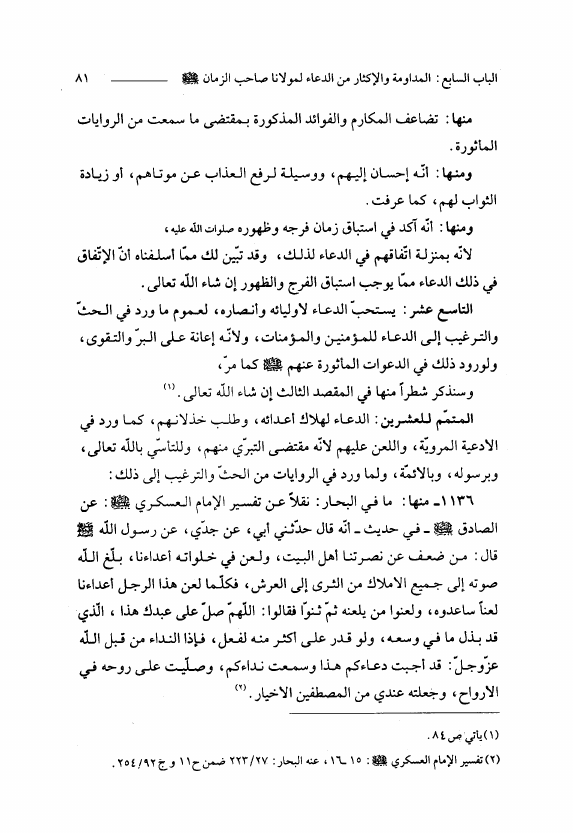 الباب السابع: المداومة والإكثار من الدعاء لمولانا صاحب الزمان ﷺ ــــــــــــ ٨١
منها: تضاعف المكارم والفوائد المذكورة بمقتضى ما سمعت من الروايات
المأثورة.
ومنها: أنّه إحسان إليهم، ووسيلة لرفع العذاب عن موتاهم، أو زيادة
الثواب لهم، كما عرفت.
ومنها: أنّه آكد في استباق زمان فرجه وظهوره صلوات الله عليه،
لأنّه بمنزلة اتّفاقهم في الدعاء لذلك، وقد تبّين لك ممّا أسلفناه أنّ الإتّفاق
في ذلك الدعاء ممّا يوجب استباق الفرج والظهور إن شاء الله تعالى.
التاسع عشر: يستحبّ الدعاء لاوليائه وأنصاره، لعموم ما ورد في الحثّ
والترغيب إلى الدعاء للمؤمنين والمؤمنات، ولأنّه إعانة على البرّ والتقوى،
ولورود ذلك في الدعوات المأثورة عنهم ﷺ كما مرّ،
وسنذكر شطراً منها في المقصد الثالث إن شاء الله تعالى.(١)
المتمّم للعشرين: الدعاء لهلاك أعدائه، وطلب خذلانهم، كما ورد في
الادعية المرويّة، واللعن عليهم لأنّه مقتضى التبرّي منهم، وللتأسّي بالله تعالى،
وبرسوله، وبالائمّة، ولما ورد في الروايات من الحثّ والترغيب إلى ذلك:
١١٣٦ـ منها: ما في البحار: نقلاً عن تفسير الإمام العسكري ﷺ: عن
الصادق ﷺ ـ في حديث ـ أنّه قال حدّثني أبي، عن جدّي، عن رسول الله ﷺ
قال: من ضعف عن نصرتنا أهل البيت، ولعن في خلواته أعداءنا، بلّغ الله
صوته إلى جميع الاملاك من الثرى إلى العرش، فكلّما لعن هذا الرجل أعداءنا
لعناً ساعدوه، ولعنوا من يلعنه ثمّ ثنوا فقالوا: اللهمّ صلّ على عبدك هذا، الّذي
قد بذل ما في وسعه، ولو قدر على أكثر منه لفعل، فإذا النداء من قبل الله
عزّوجلّ: قد أجبت دعاءكم هذا وسمعت نداءكم، وصلّيت على روحه في
الارواح، وجعلته عندي من المصطفين الاخيار.(٢)
(١) يأتي ص ٨٤.
(٢) تفسير الإمام العسكري ﷺ: ١٥ ـ١٦، عنه البحار: ٢٢٣/٢٧ ضمن ح١١ و ج٢٥٤/٩٢.